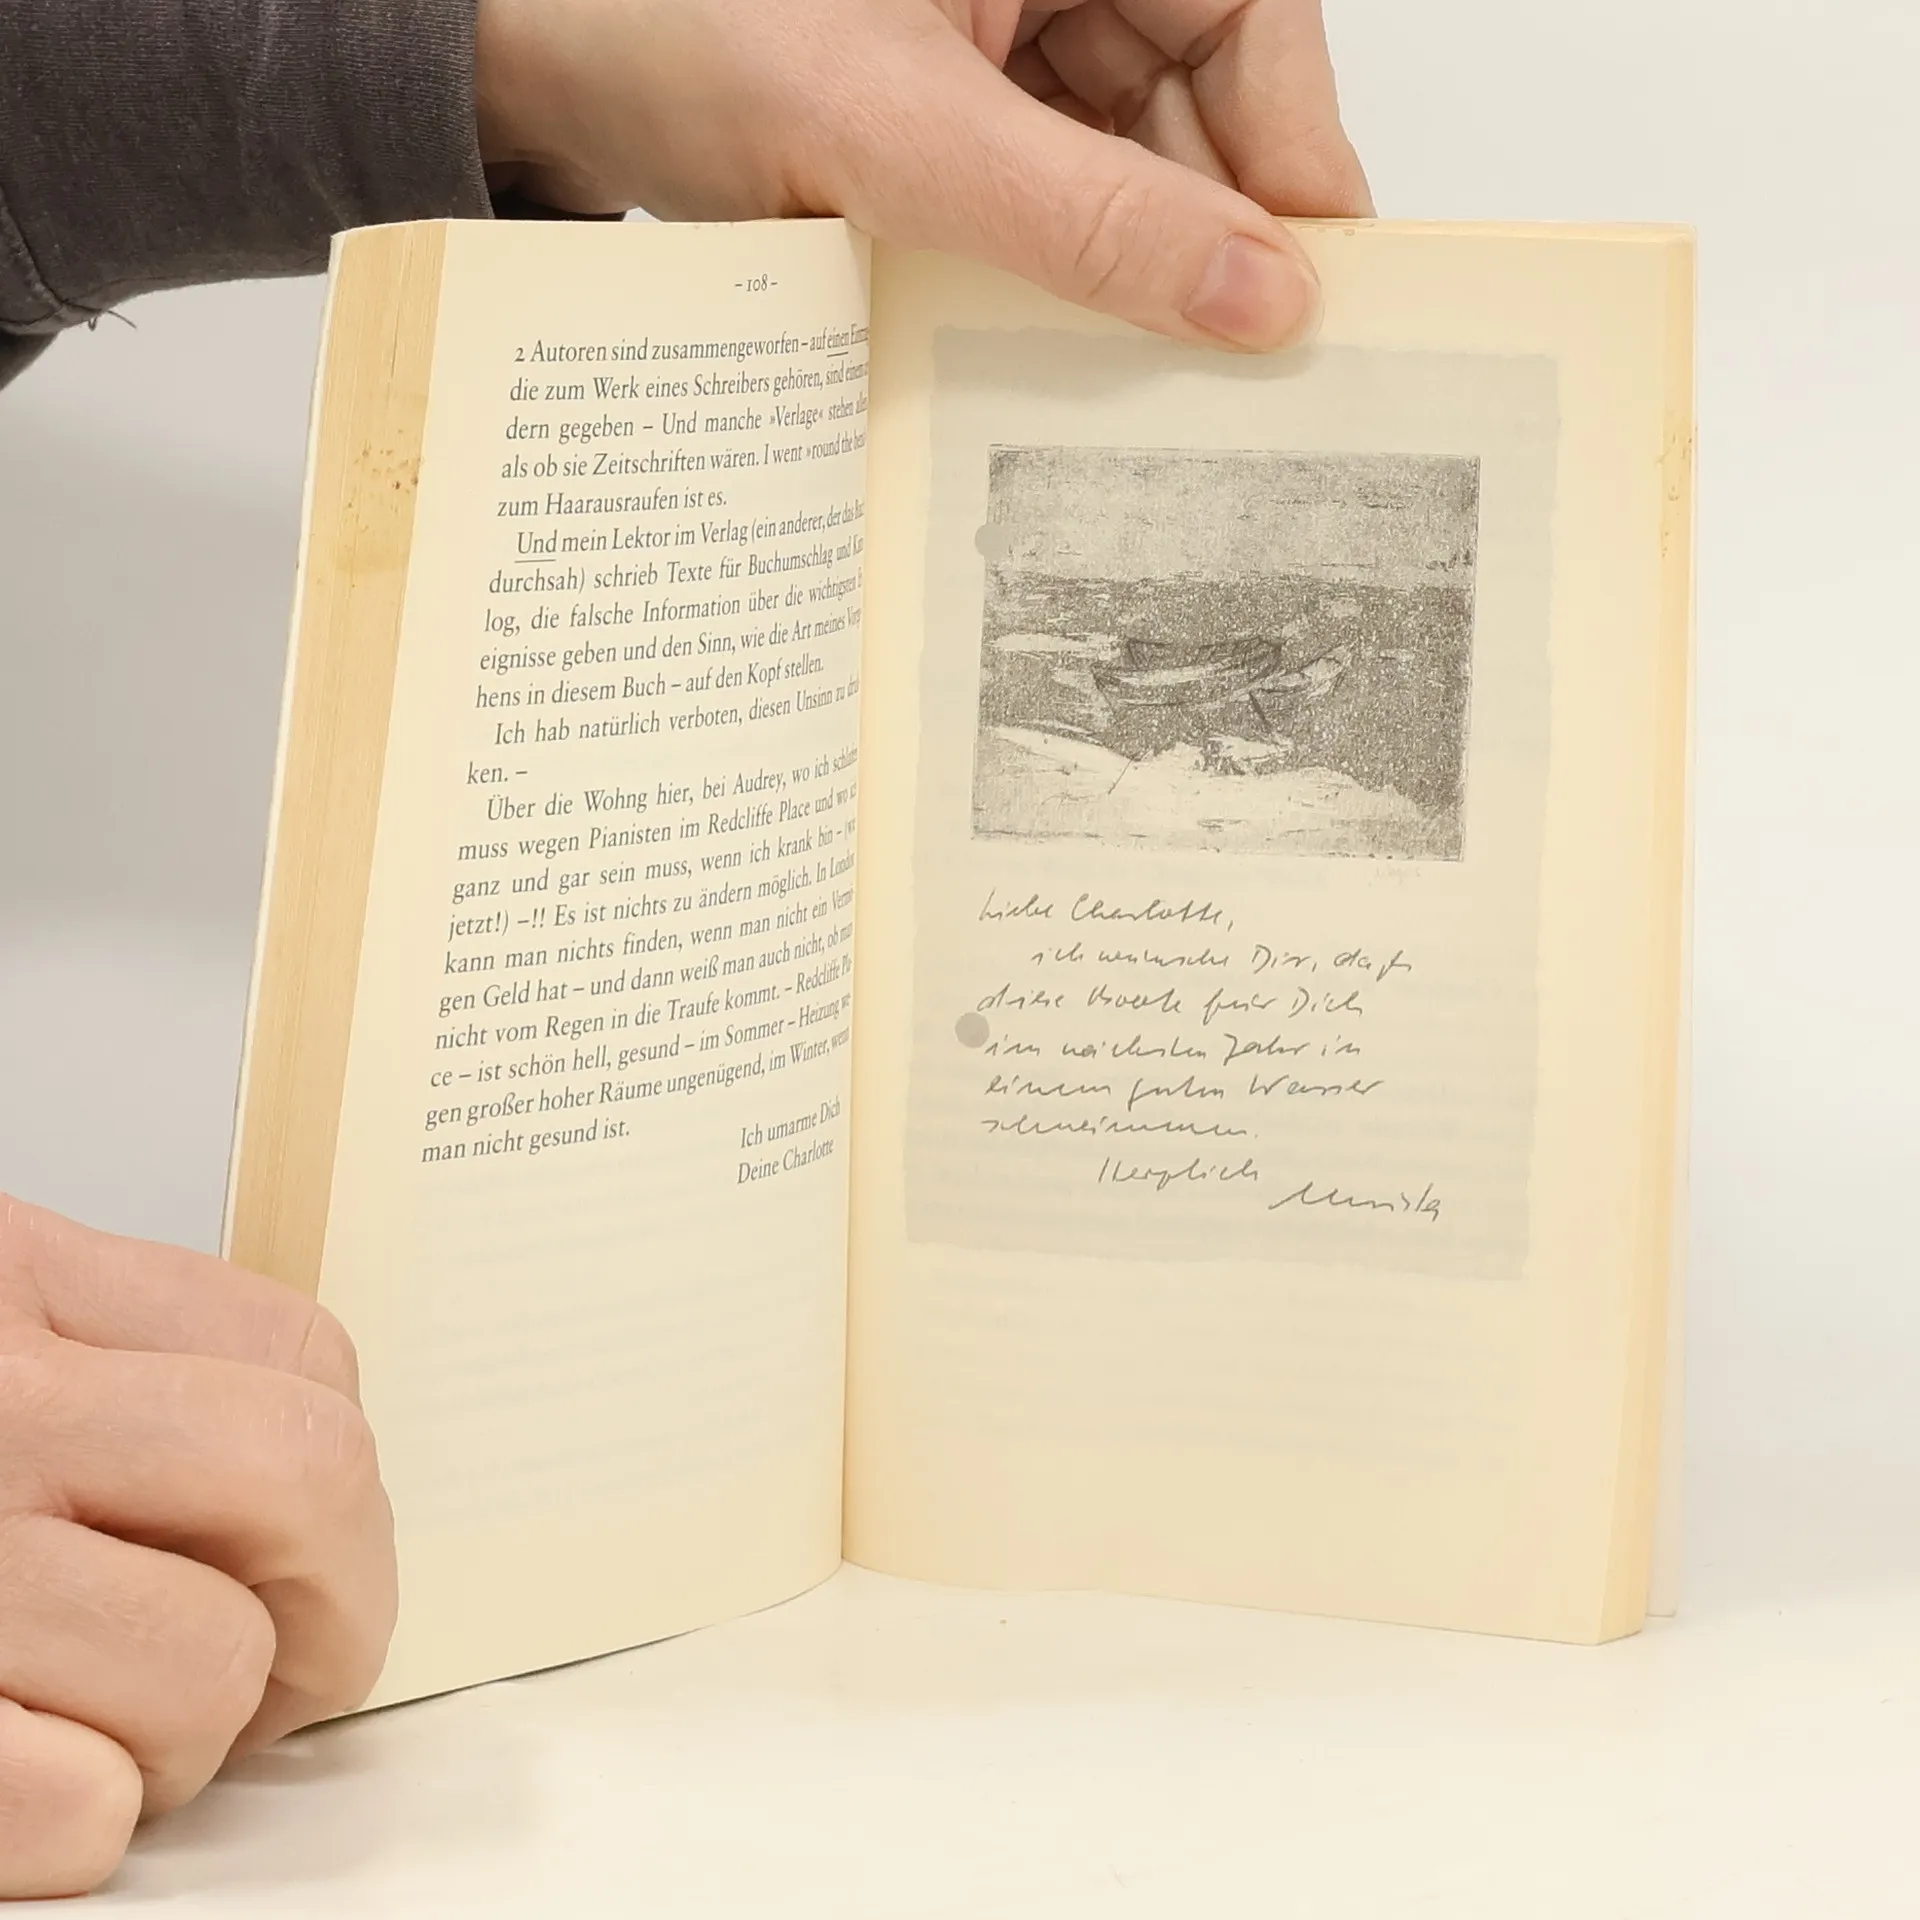 – 108 –
2 Autoren sind zusammengeworfen – auf einen
die zum Werk eines Schreibers gehören, sind einem
dern gegeben – Und manche »Verlage« stehen
als ob sie Zeitschriften wären. I went »round the
zum Haarausraufen ist es.
Und mein Lektor im Verlag (ein anderer, der das
durchsah) schrieb Texte für Buchumschlag und
log, die falsche Information über die wichtigsten
eignisse geben und den Sinn, wie die Art meines
hens in diesem Buch – auf den Kopf stellen.
Ich hab natürlich verboten, diesen Unsinn zu
ken. –
Über die Wohng hier, bei Audrey, wo ich
muss wegen Pianisten im Redcliffe Place und wo
ganz und gar sein muss, wenn ich krank bin – (
jetzt!) –!! Es ist nichts zu ändern möglich. In London
kann man nichts finden, wenn man nicht ein
gen Geld hat – und dann weiß man auch nicht, ob man
nicht vom Regen in die Traufe kommt. – Redcliffe Pla-
ce – ist schön hell, gesund – im Sommer – Heizung
gen großer hoher Räume ungenügend, im Winter, wenn
man nicht gesund ist.
Ich umarme Dich
Deine Charlotte
Liebe Charlotte,
ich wünsche Dir, daß
diese Boote für Dich
im nächsten Jahr in
einem guten Wasser
schwimmen.
Herzlich